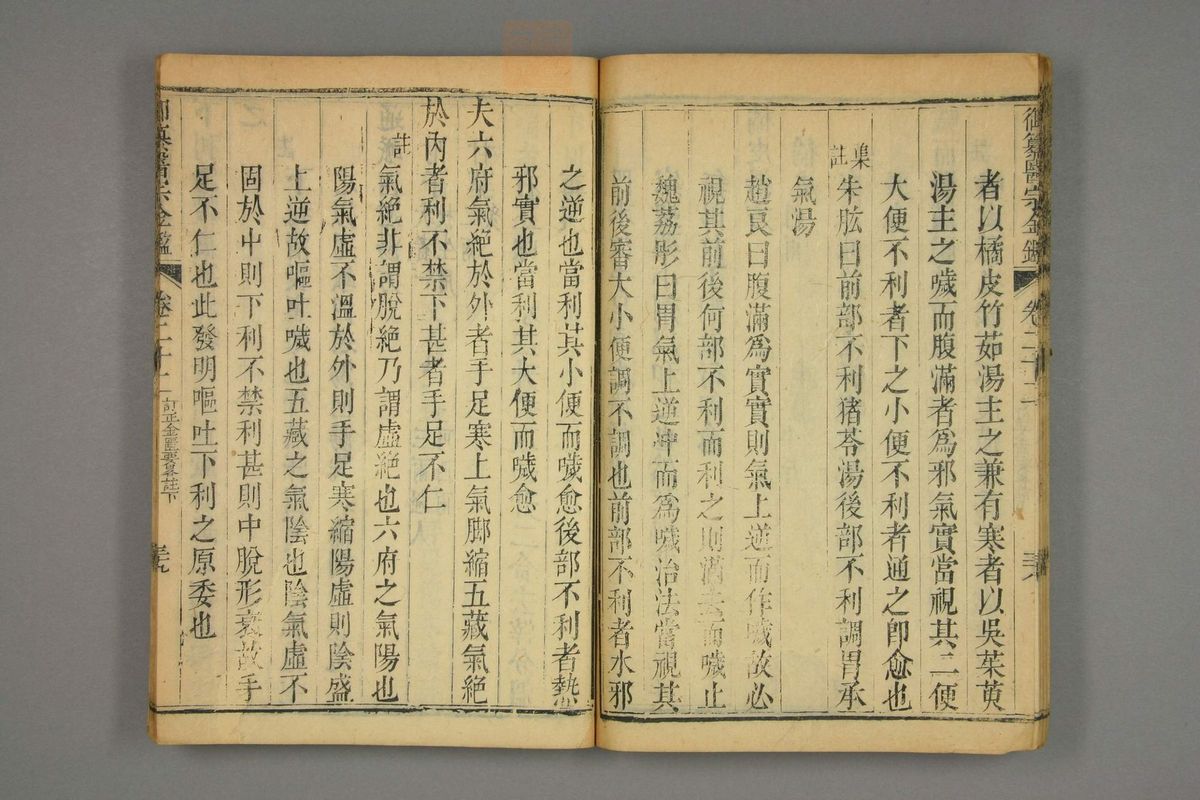 御纂醫宗金鑑 卷二十二
者以橘皮竹茹湯主之兼有寒者以吳茱萸
湯主之噦而腹滿者為邪氣實當視其二便
大便不利者下之小便不利者通之卽愈也
集註
朱肱曰前部不利猪苓湯後部不利調胃承
氣湯
趙良曰腹滿為實實則氣上逆而作噦故必
視其前後何部不利而利之則滿去而噦止
魏荔彤曰胃氣上逆冲而為噦治法當視其
前後審大小便調不調也前部不利者水邪
之逆也當利其小便而噦愈後部不利者熱
邪實也當利其大便而噦愈
夫六府氣絕於外者手足寒上氣脚縮五藏氣絕
於內者利不禁下甚者手足不仁
註
氣絕非謂脫絕乃謂虛絕也六府之氣陽也
陽氣虛不溫於外則手足寒縮陽虛則陰盛
上逆故嘔吐噦也五藏之氣陰也陰氣虛不
固於中則下利不禁利甚則中脫形衰故手
足不仁也此發明嘔吐下利之原委也
御纂醫宗金鑑 卷二十二 訂正金匱要畧註下